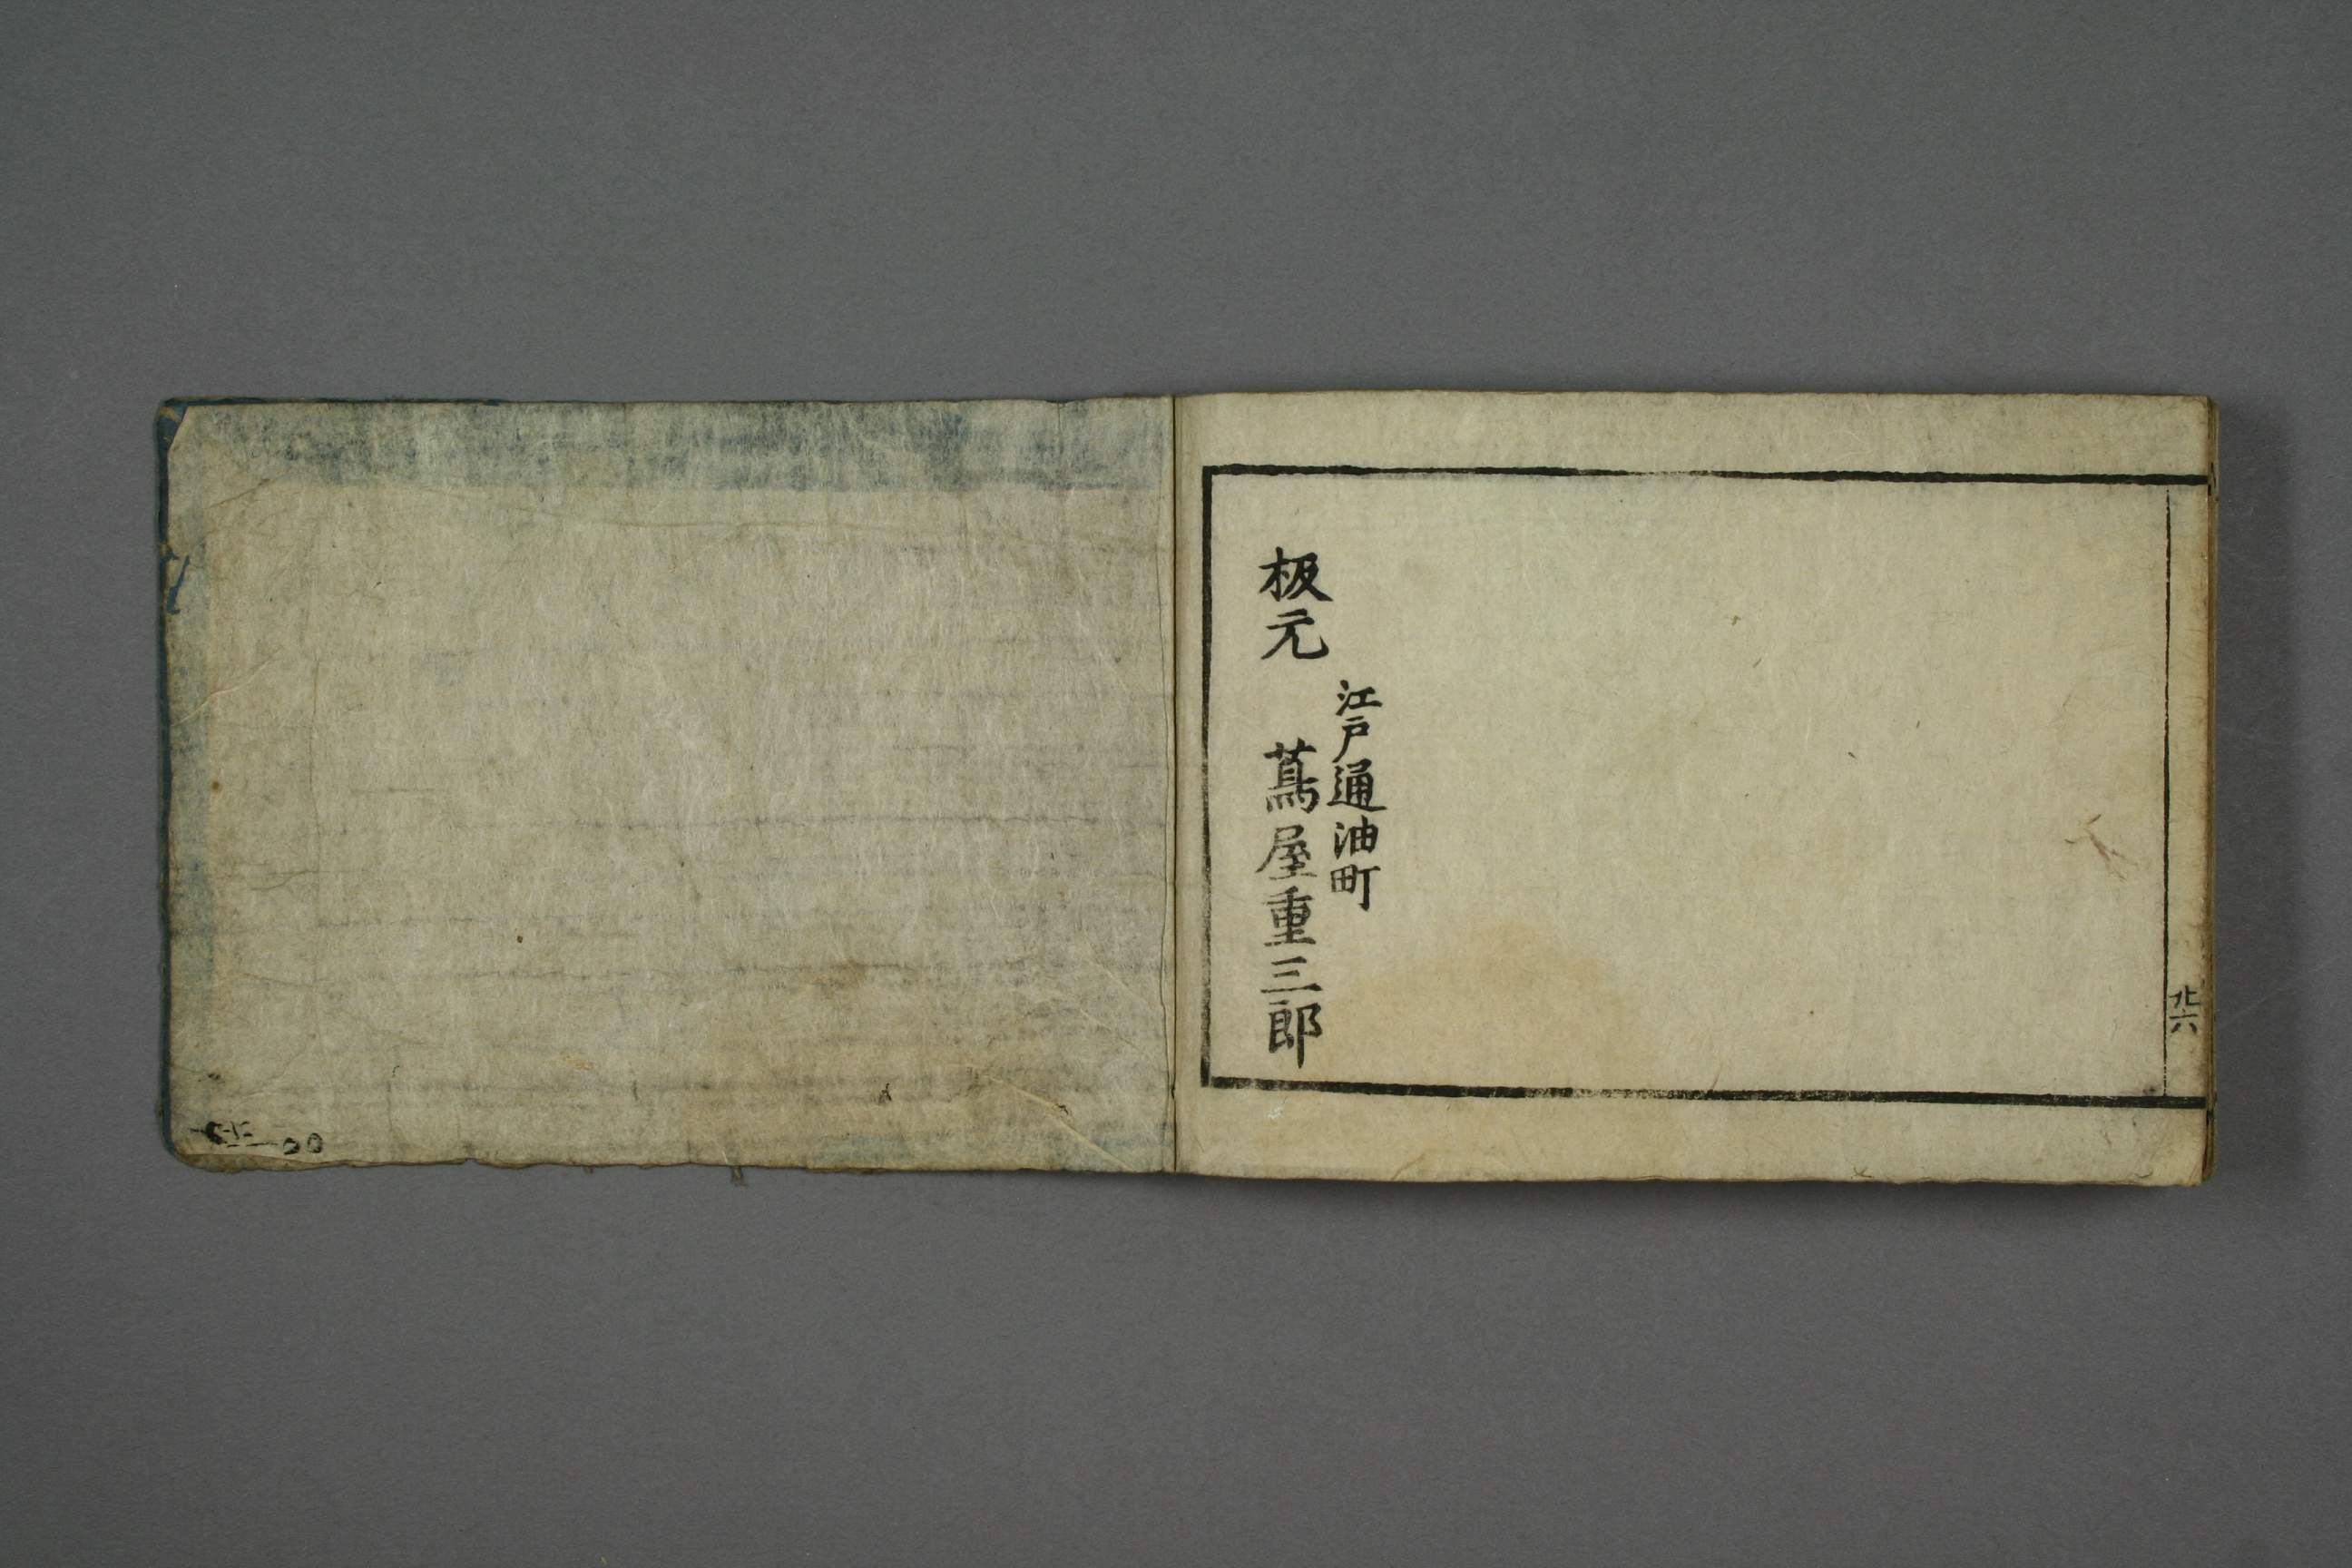 江戸通油町
板元 蔦屋重三郎
廿六